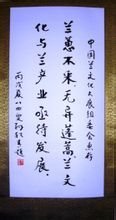 中国兰文化大展组委会惠存
兰蕙不采，无异蓬蒿，兰文
化与兰产业亟待发展，
丙戌夏八四叟